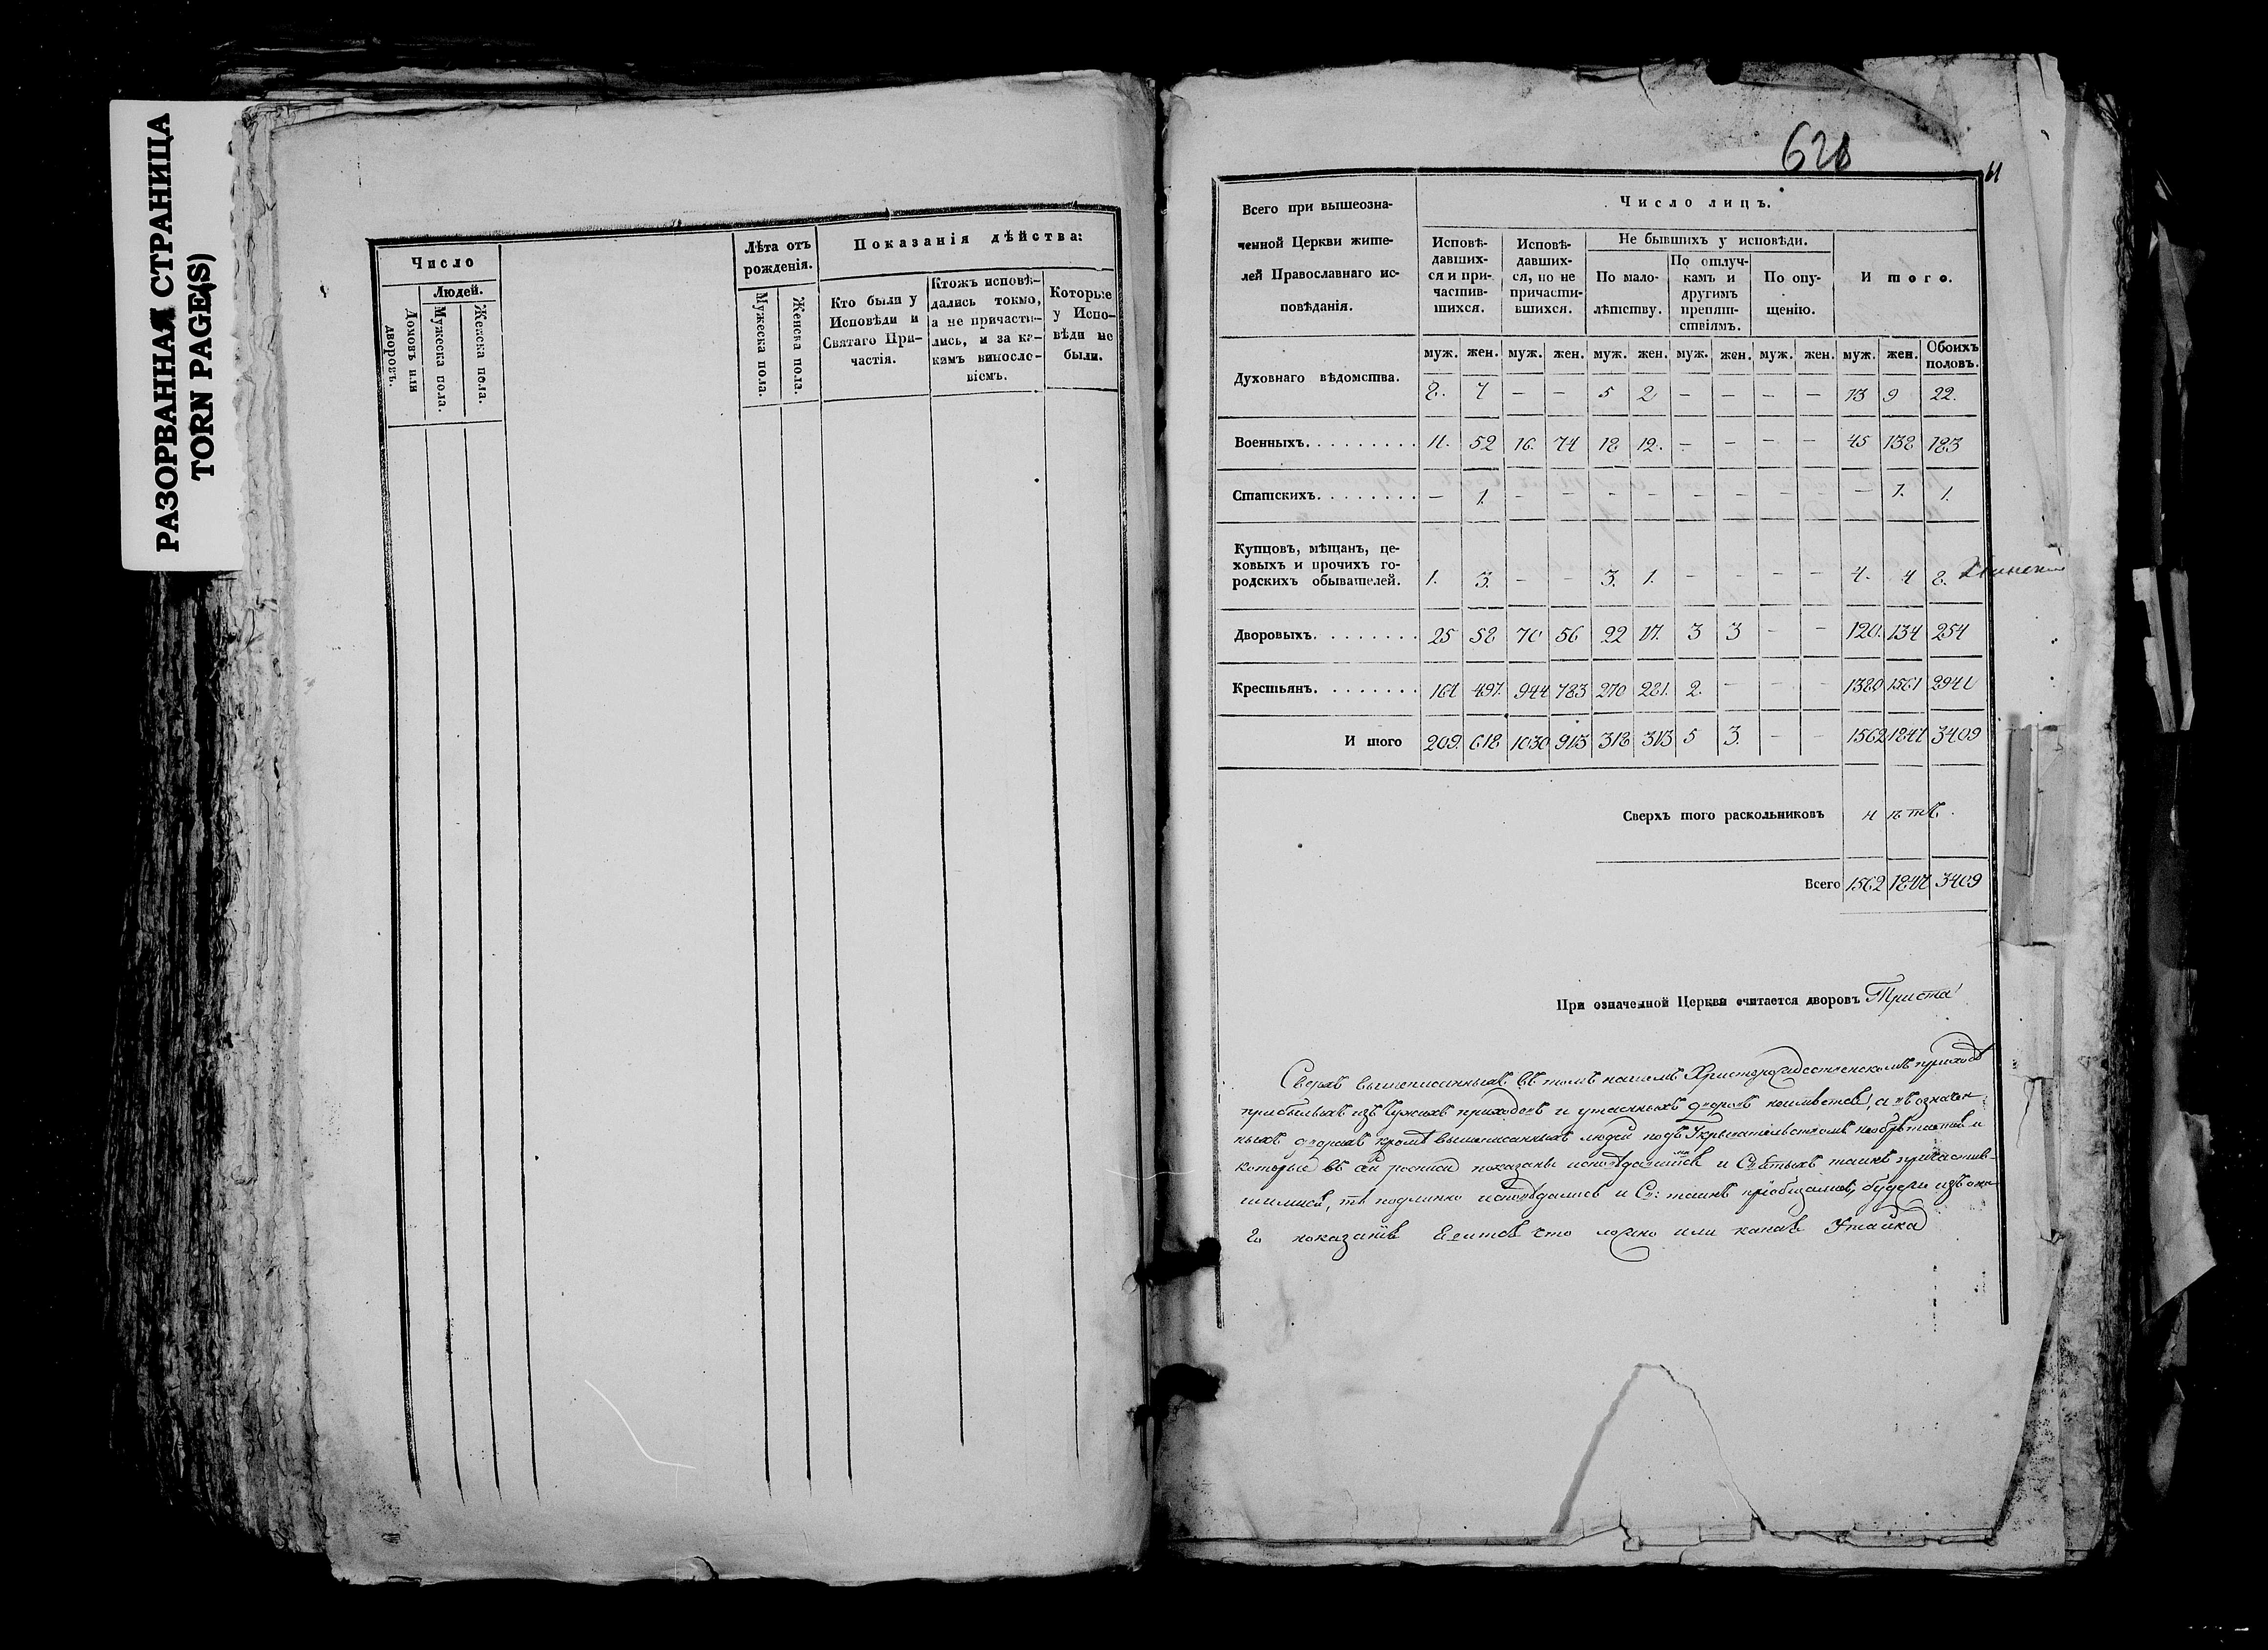 РАЗОРВАННАЯ СТРАНИЦА
TORN PAGE(S)
Число
Людей.
Домовъ или дворовъ.
Мужеска пола.
Женска пола.
Лѣта отъ рожденія.
Мужеска пола.
Женска пола.
Показанія дѣйства:
Кто были у
Исповѣди и
Святаго При-
частія.
Ктожъ исповѣ-
дались токмо,
а не причасти-
лись, и за ка-
кимъ винословіемъ.
Которые
у Испо-
вѣди не
были.
628
Всего при вышеозна-
ченной Церкви жите-
лей Православнаго ис-
повѣданія.
Число лицъ.
Исповѣ-
давших-
ся и при-
частив-
шихся.
Исповѣ-
давших-
ся, но не
причасти-
вшихся.
Не бывшихъ у исповѣди.
По мало-
лѣтству.
По отлуч-
камъ и
другимъ
препят-
ствіямъ.
По опу-
щенію.
И того.
муж. жен. муж. жен. муж. жен. муж. жен. муж. жен. муж. жен. Обоихъ половъ.
Духовнаго вѣдомства. 8. 7 — — 5 2 — — — — 13 9 22.
Военныхъ. 11. 52 16. 74 18 12. — — — — 45 138 183
Статскихъ. — 1. — — — — — — — — — 1. 1.
Купцовъ, мѣщанъ, це-
ховыхъ и прочихъ го-
родскихъ обывателей. 1. 3. — — 3. 1. — — — — 4. 4 8.
Дворовыхъ. 25 58 70 56 22 17. 3 3 — — 120. 134 254
Крестьянъ. 164 497. 944 783 270 281. 2. — — — 1380 1561 2941
И того 209. 618 1030 913 318 313 5 3. — — 1562 1847 3409
Сверхъ того раскольниковъ нѣтъ.
Всего 1562 1847 3409
При означенной Церкви считается дворовъ Триста
Сверхъ вышеписанныхъ въ томъ нашемъ Христорождественскомъ приходѣ
прибылыхъ изъ чужихъ приходовъ и утаенныхъ дворовъ неимѣется, а въ означен-
ныхъ дворахъ кромѣ вышеписанныхъ людей подъ Укрывательствомъ необрѣтается и
которые въ сей росписи показаны исповѣдавшимися и Святыхъ таинъ причастив-
шимися, тѣ подлинно исповѣдались и Св: таинъ пріобщались, будеже изъ она-
го показанія явится что ложно или какая Утайка